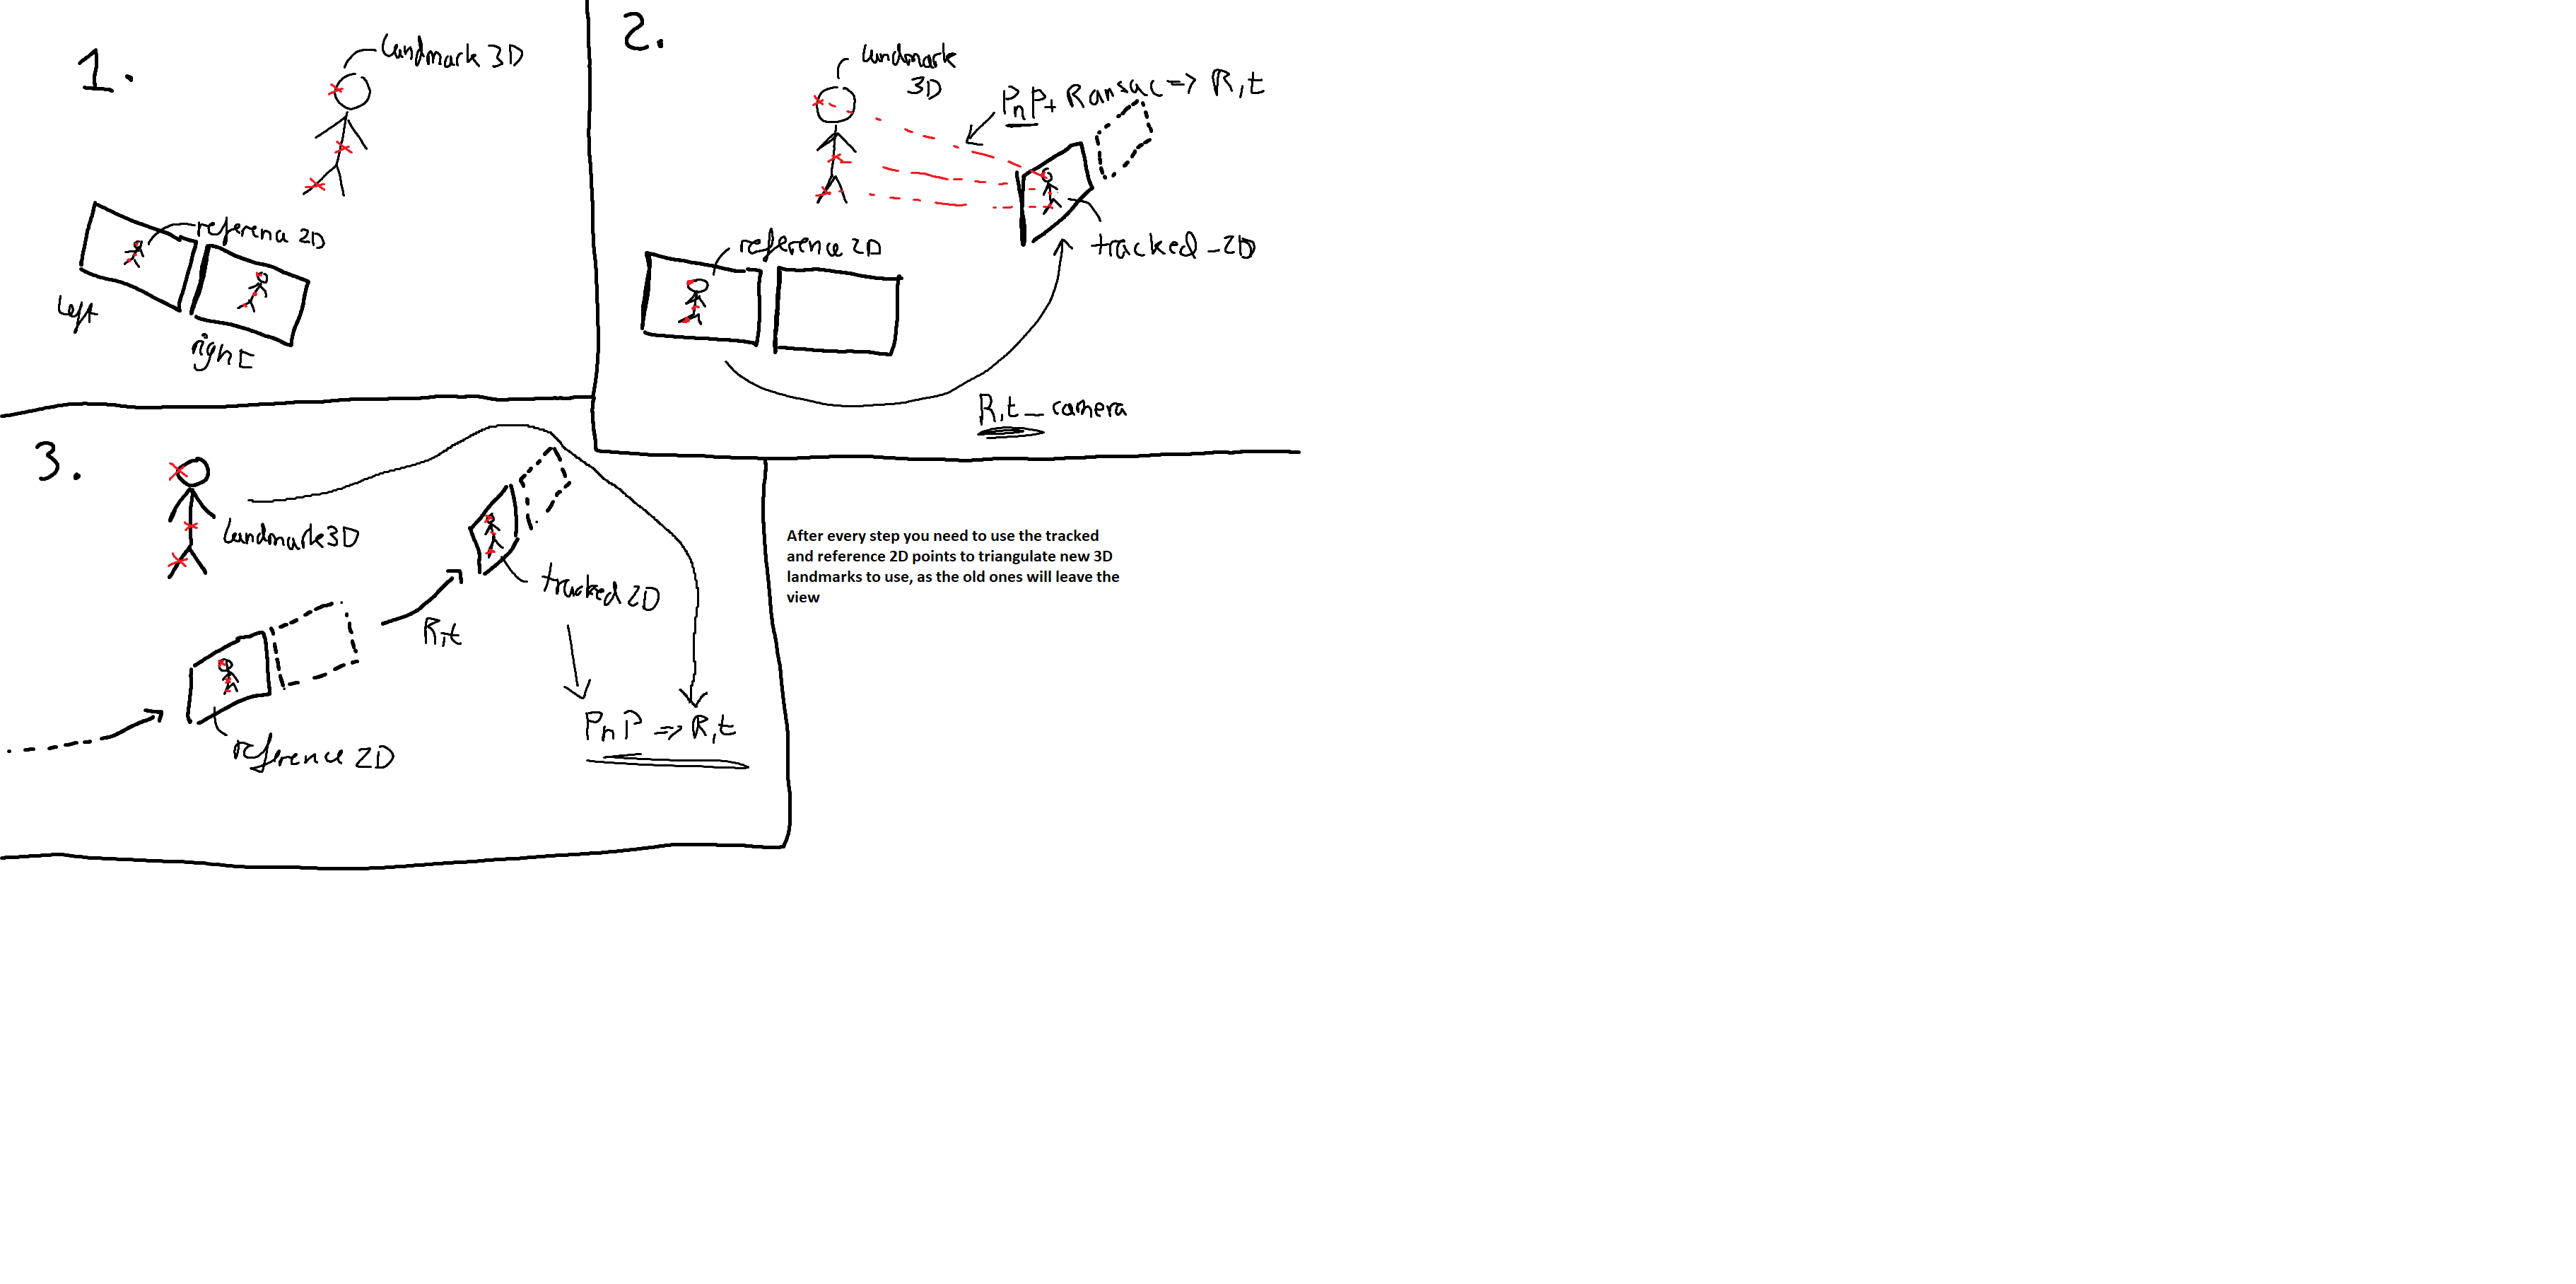 1.
landmark 3D
referena 2D
left
right
2.
landmark
3D
PnP + Ransac => R,t
reference 2D
tracked_2D
R,t_camera
3.
landmark3D
tracked 2D
R,t
reference 2D
PnP => R,t
After every step you need to use the tracked
and reference 2D points to triangulate new 3D
landmarks to use, as the old ones will leave the
view